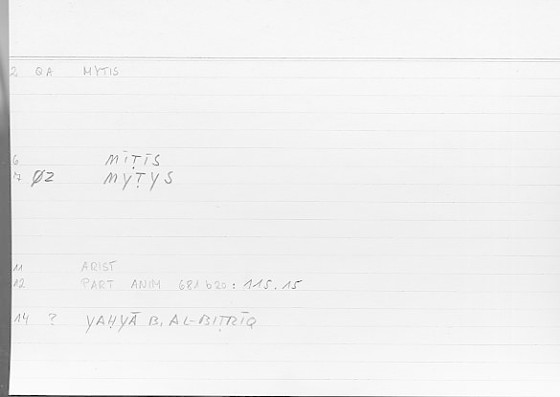 2 QA MYTIS
6 MĪṬĪS
7 ØZ MYṬYS
11 ARIST
12 PART ANIM 681b20: 115.15
14 ? YAḤYĀ B. AL-BIṬRĪQ